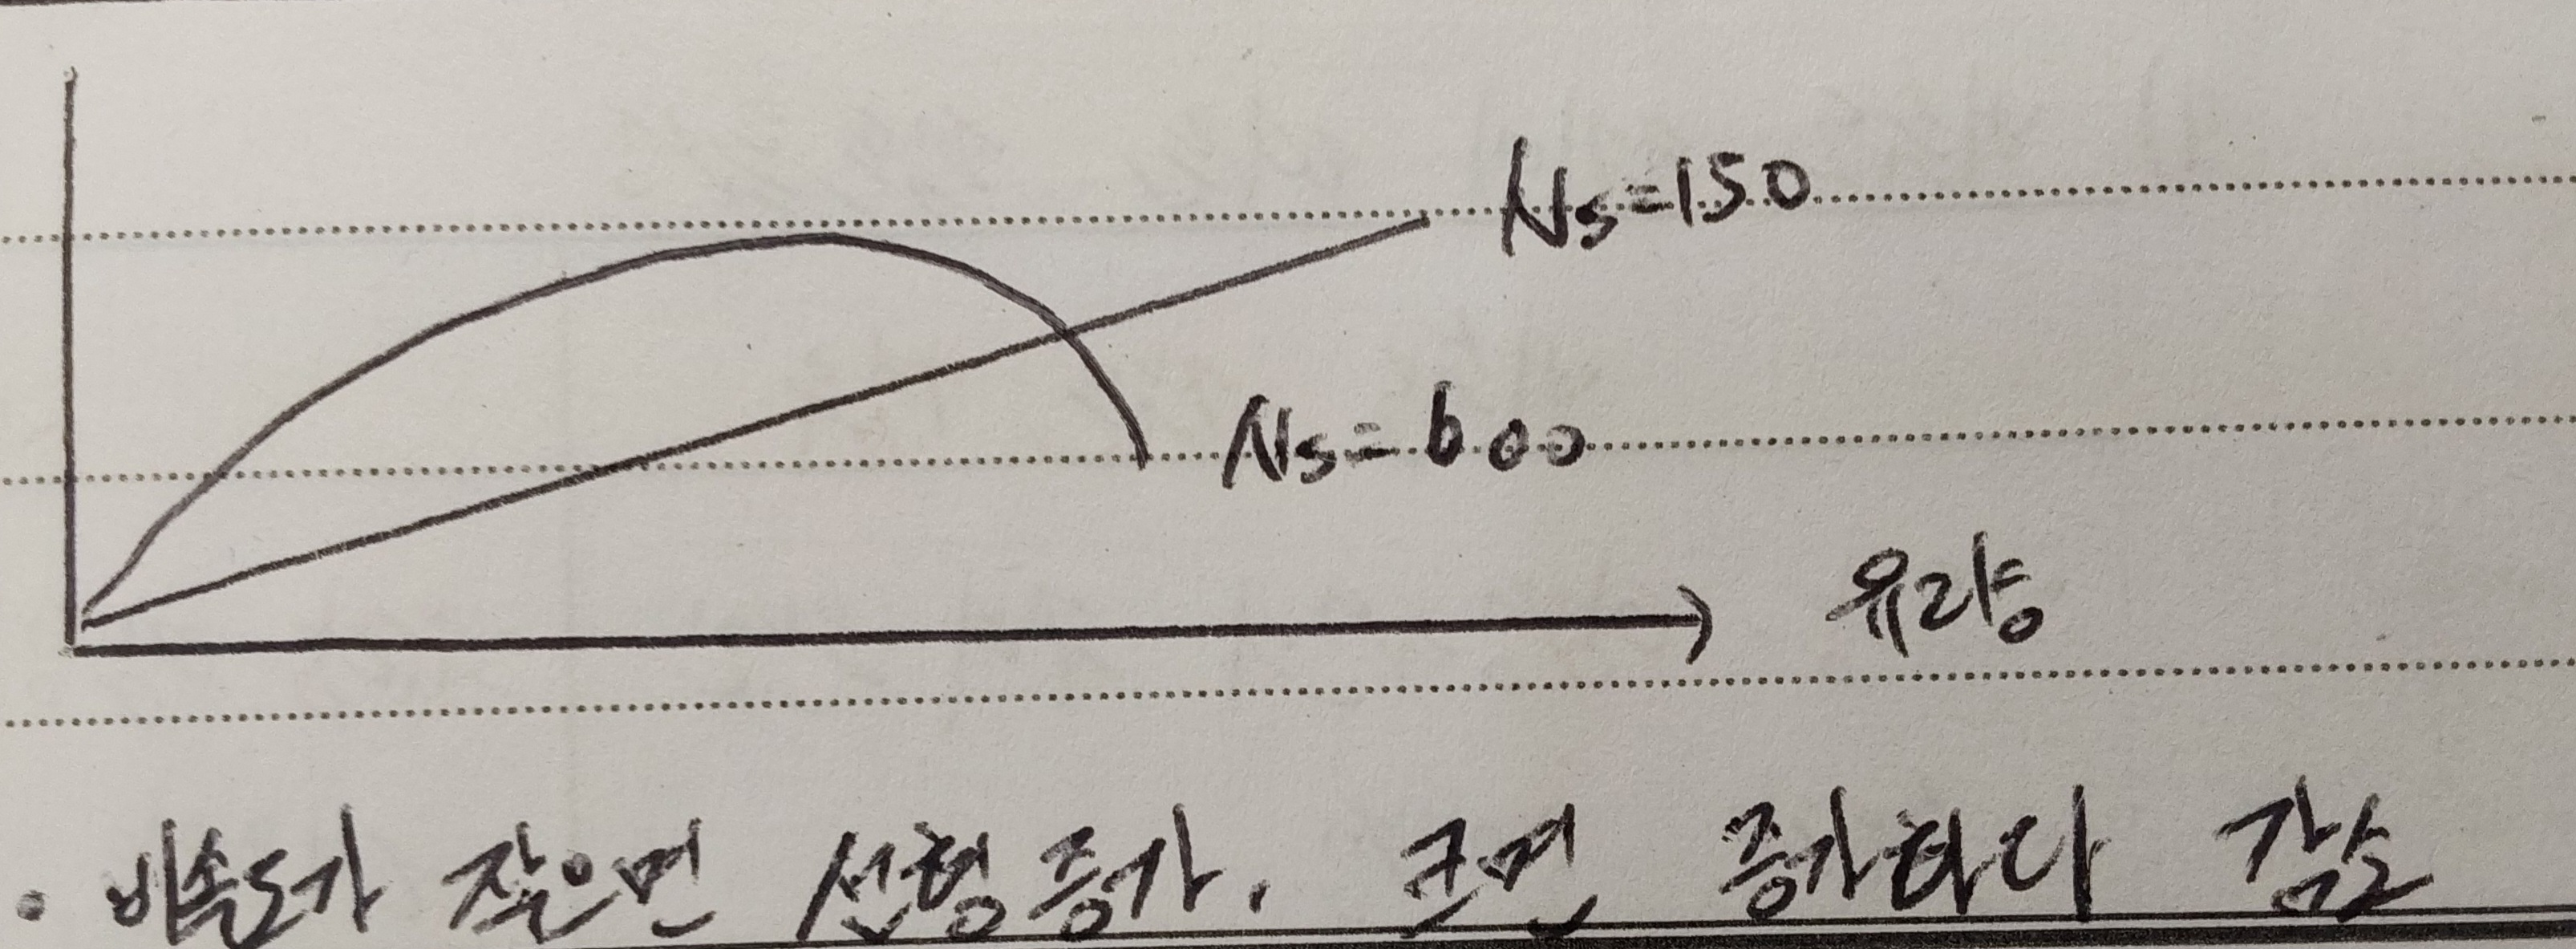 Ns=150
Ns=600
유량
• 비속도가 작으면 선형증가, 크면 증가하다 감소